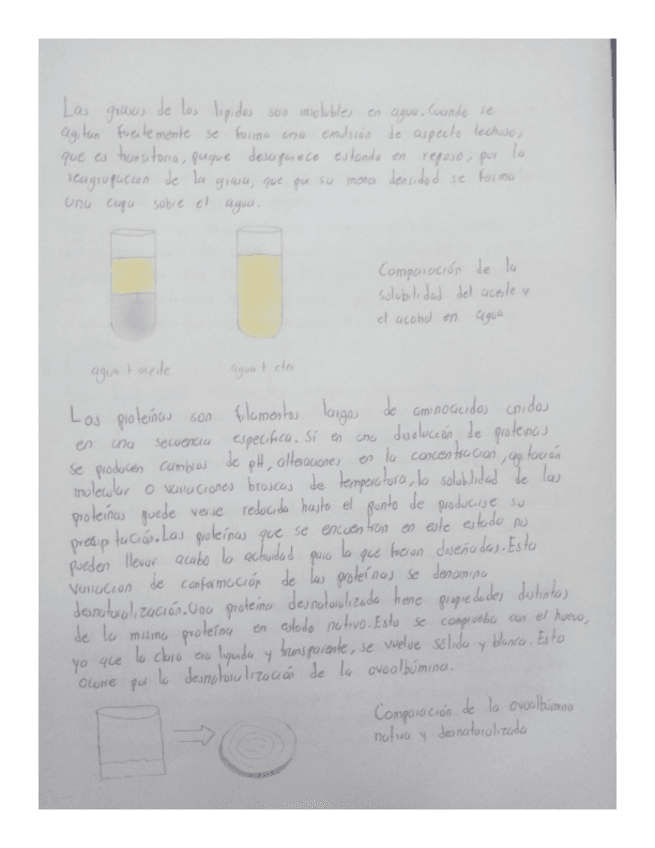 Las grasas de los lípidos son insolubles en agua. Cuando se
agitan fuertemente se forma una emulsión de aspecto lechoso,
que es transitoria, porque desaparece estando en reposo, por la
reagrupacion de la grasa, que por su menor densidad se forma
una capa sobre el agua.
Comparación de la
solubilidad del aceite y
el acohol en agua
agua + aceite
agua + eter
Las proteínas son filamentos largos de aminoácidos unidos
en una secuencia específica. Si en una disolución de proteinas
se producen cambios de pH, alteraciones en la concentración, agitación
molecular o variaciones bruscas de temperatura, la solubilidad de las
proteínas puede verse reducida hasta el punto de producirse su
precipitación. Las proteínas que se encuentran en este estado no
pueden llevar acabo la actividad para la que fueron diseñadas. Esta
variacion de conformación de las proteínas se denomina
desnaturalización. Una proteina desnaturalizada tiene propiedades distintas
de la misma proteína en estado nativo. Esto se comprueba con el huevo,
ya que la clara era liquida y transparente, se vuelve sólida y blanca. Esto
ocurre por la desnaturalización de la ovoalbúmina.
Comparación de la ovoalbúmina
nativa y desnaturalizada